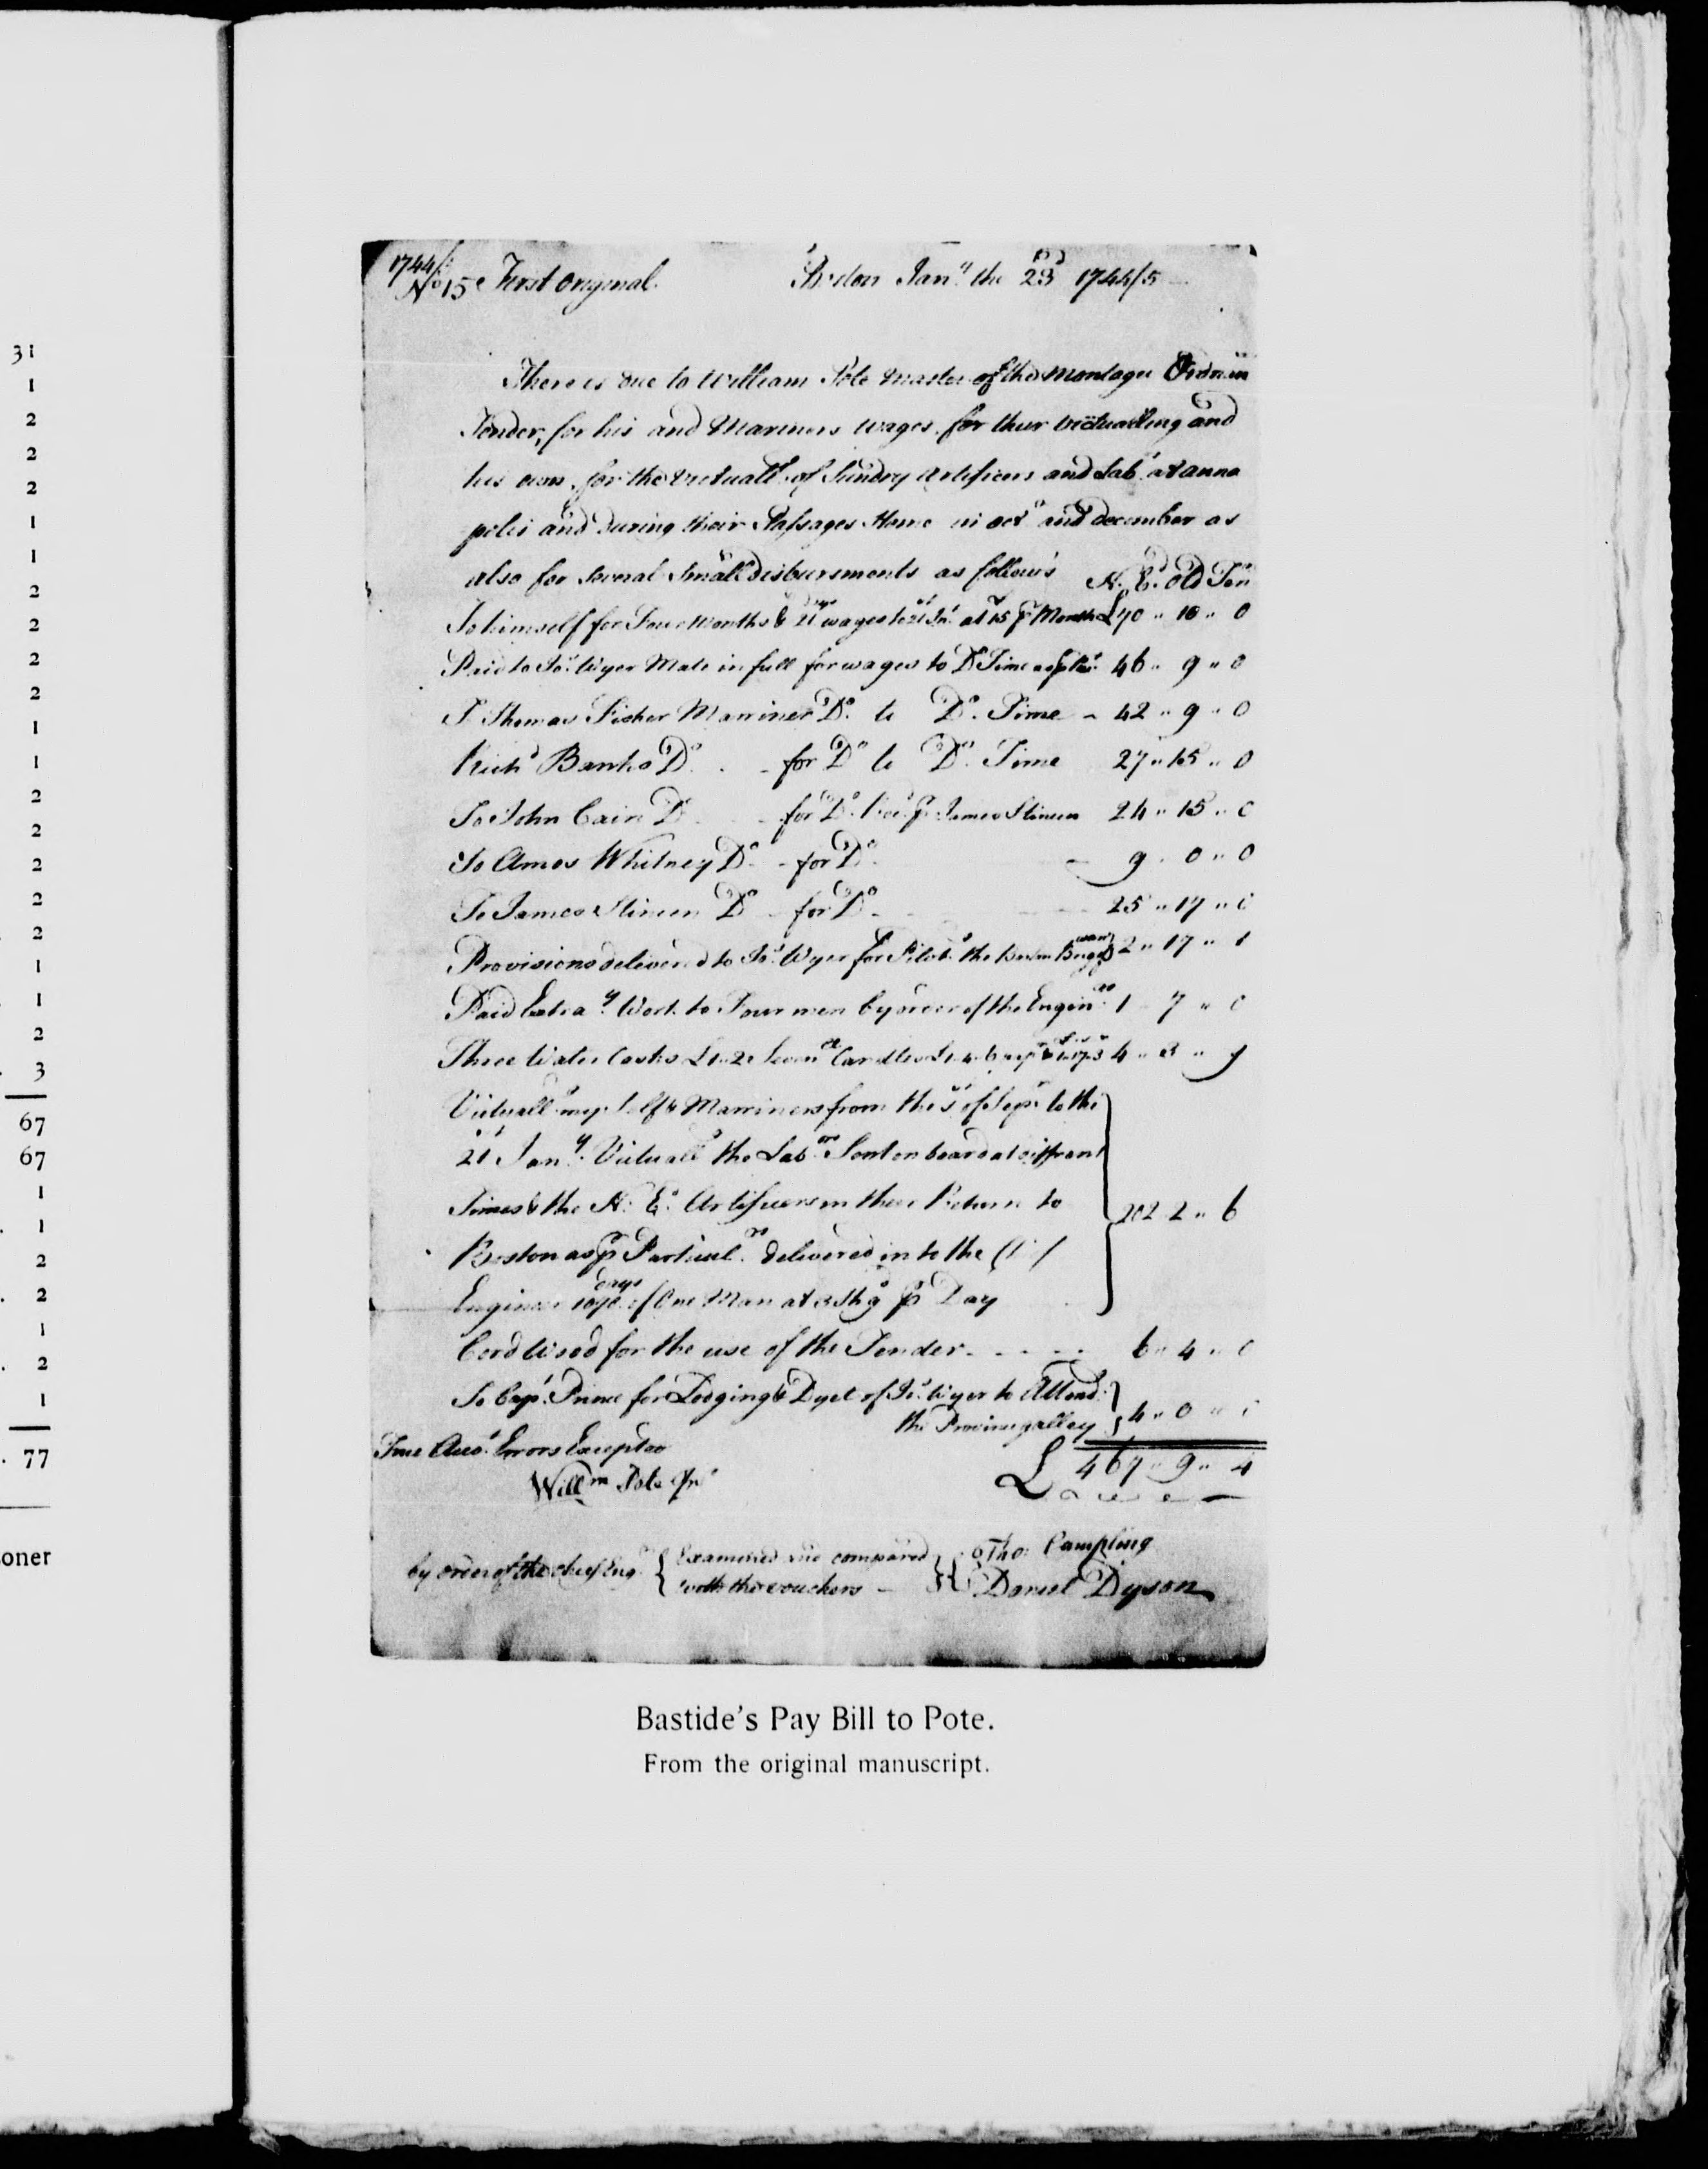 31
1
2
2
2
1
1
2
2
2
2
1
1
2
2
2
2
2
1
1
2
3
67
67
1
1
2
2
1
2
1
77
oner
1744/
No 15 First Original. Boston Jany. the 23d 1744/5
There is due to William Pote Master of the Montague
Tender, for his and Mariners wages, for their victualling and
his own, for the Victuall.g of Sundry Artificers and Labrs at anna
polis and During their Passages Home in octr and december as
also for Several Small disbursments as follows N. Ed. Old Ten
To himself for Four Months & wages to at 15 pr Month £70 " 10 " 0
Paid to Jos. Wyer Mate in full for wages to Do Time 46 " 9 " 0
To Thomas Fisher Marriner Do. to Do. Time 42 " 9 " 0
Richd Banks Do for Do to Do. Time 27 " 15 " 0
To John Cain Do for Do. pr James Stinson 24 " 15 " 0
To Amos Whitney Do. for Do. 9 " 0 " 0
To James Stinson Do for Do. 25 " 17 " 0
Provisions delivered to Jos. Wyer for the 2 " 17 " 1
Paid Extray. Work to Four men by order of the Engin 1 " 7 " 0
Three Water Casks £1.2 Candles 4 " 3 " 9
Victuallg my Self & Marriners from the of Sepr. to the
21st Jany. Victuallg the Labors. Sent on board at diffrant
Times & the N: Ed. Artificers in their Return to
Boston as pr Particulrs. delivered in to the Chief
Engineer 1070 days of One Man at 3 Shgs pr Day 202 " 2 " 6
Cord Wood for the use of the Tender 6 " 4 " 0
To Capt. Prince for Lodging & Dyet of Jos. Wyer to Attend
the Province galley 4 " 0 "
True Accot. Errors Excepted
Willm Pote Jnr £ 467 " 9 " 4
by order of the chief Engr. Examined and compared Tho: Campling
with the vouchers Daniel Dyson
Bastide's Pay Bill to Pote.
From the original manuscript.